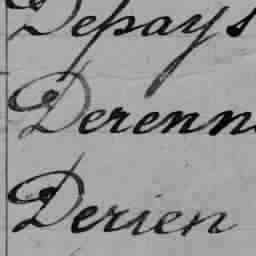 Depays
Derenn
Derien